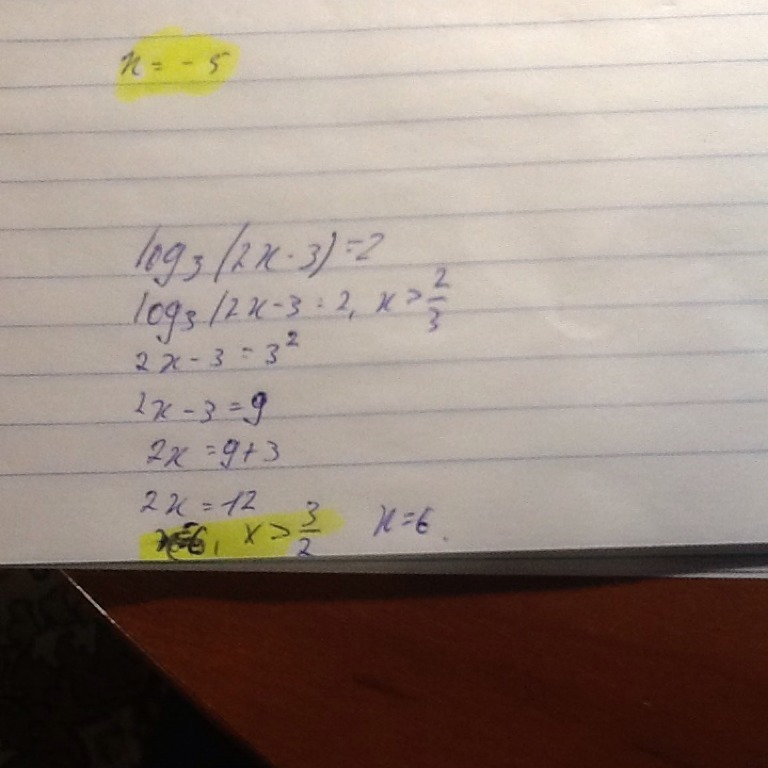 x = - 5
log₃(2x - 3) = 2
log₃(2x - 3 = 2, x > 2/3
2x - 3 = 3²
2x - 3 = 9
2x = 9 + 3
2x = 12
x=6, x > 3/2 x = 6.